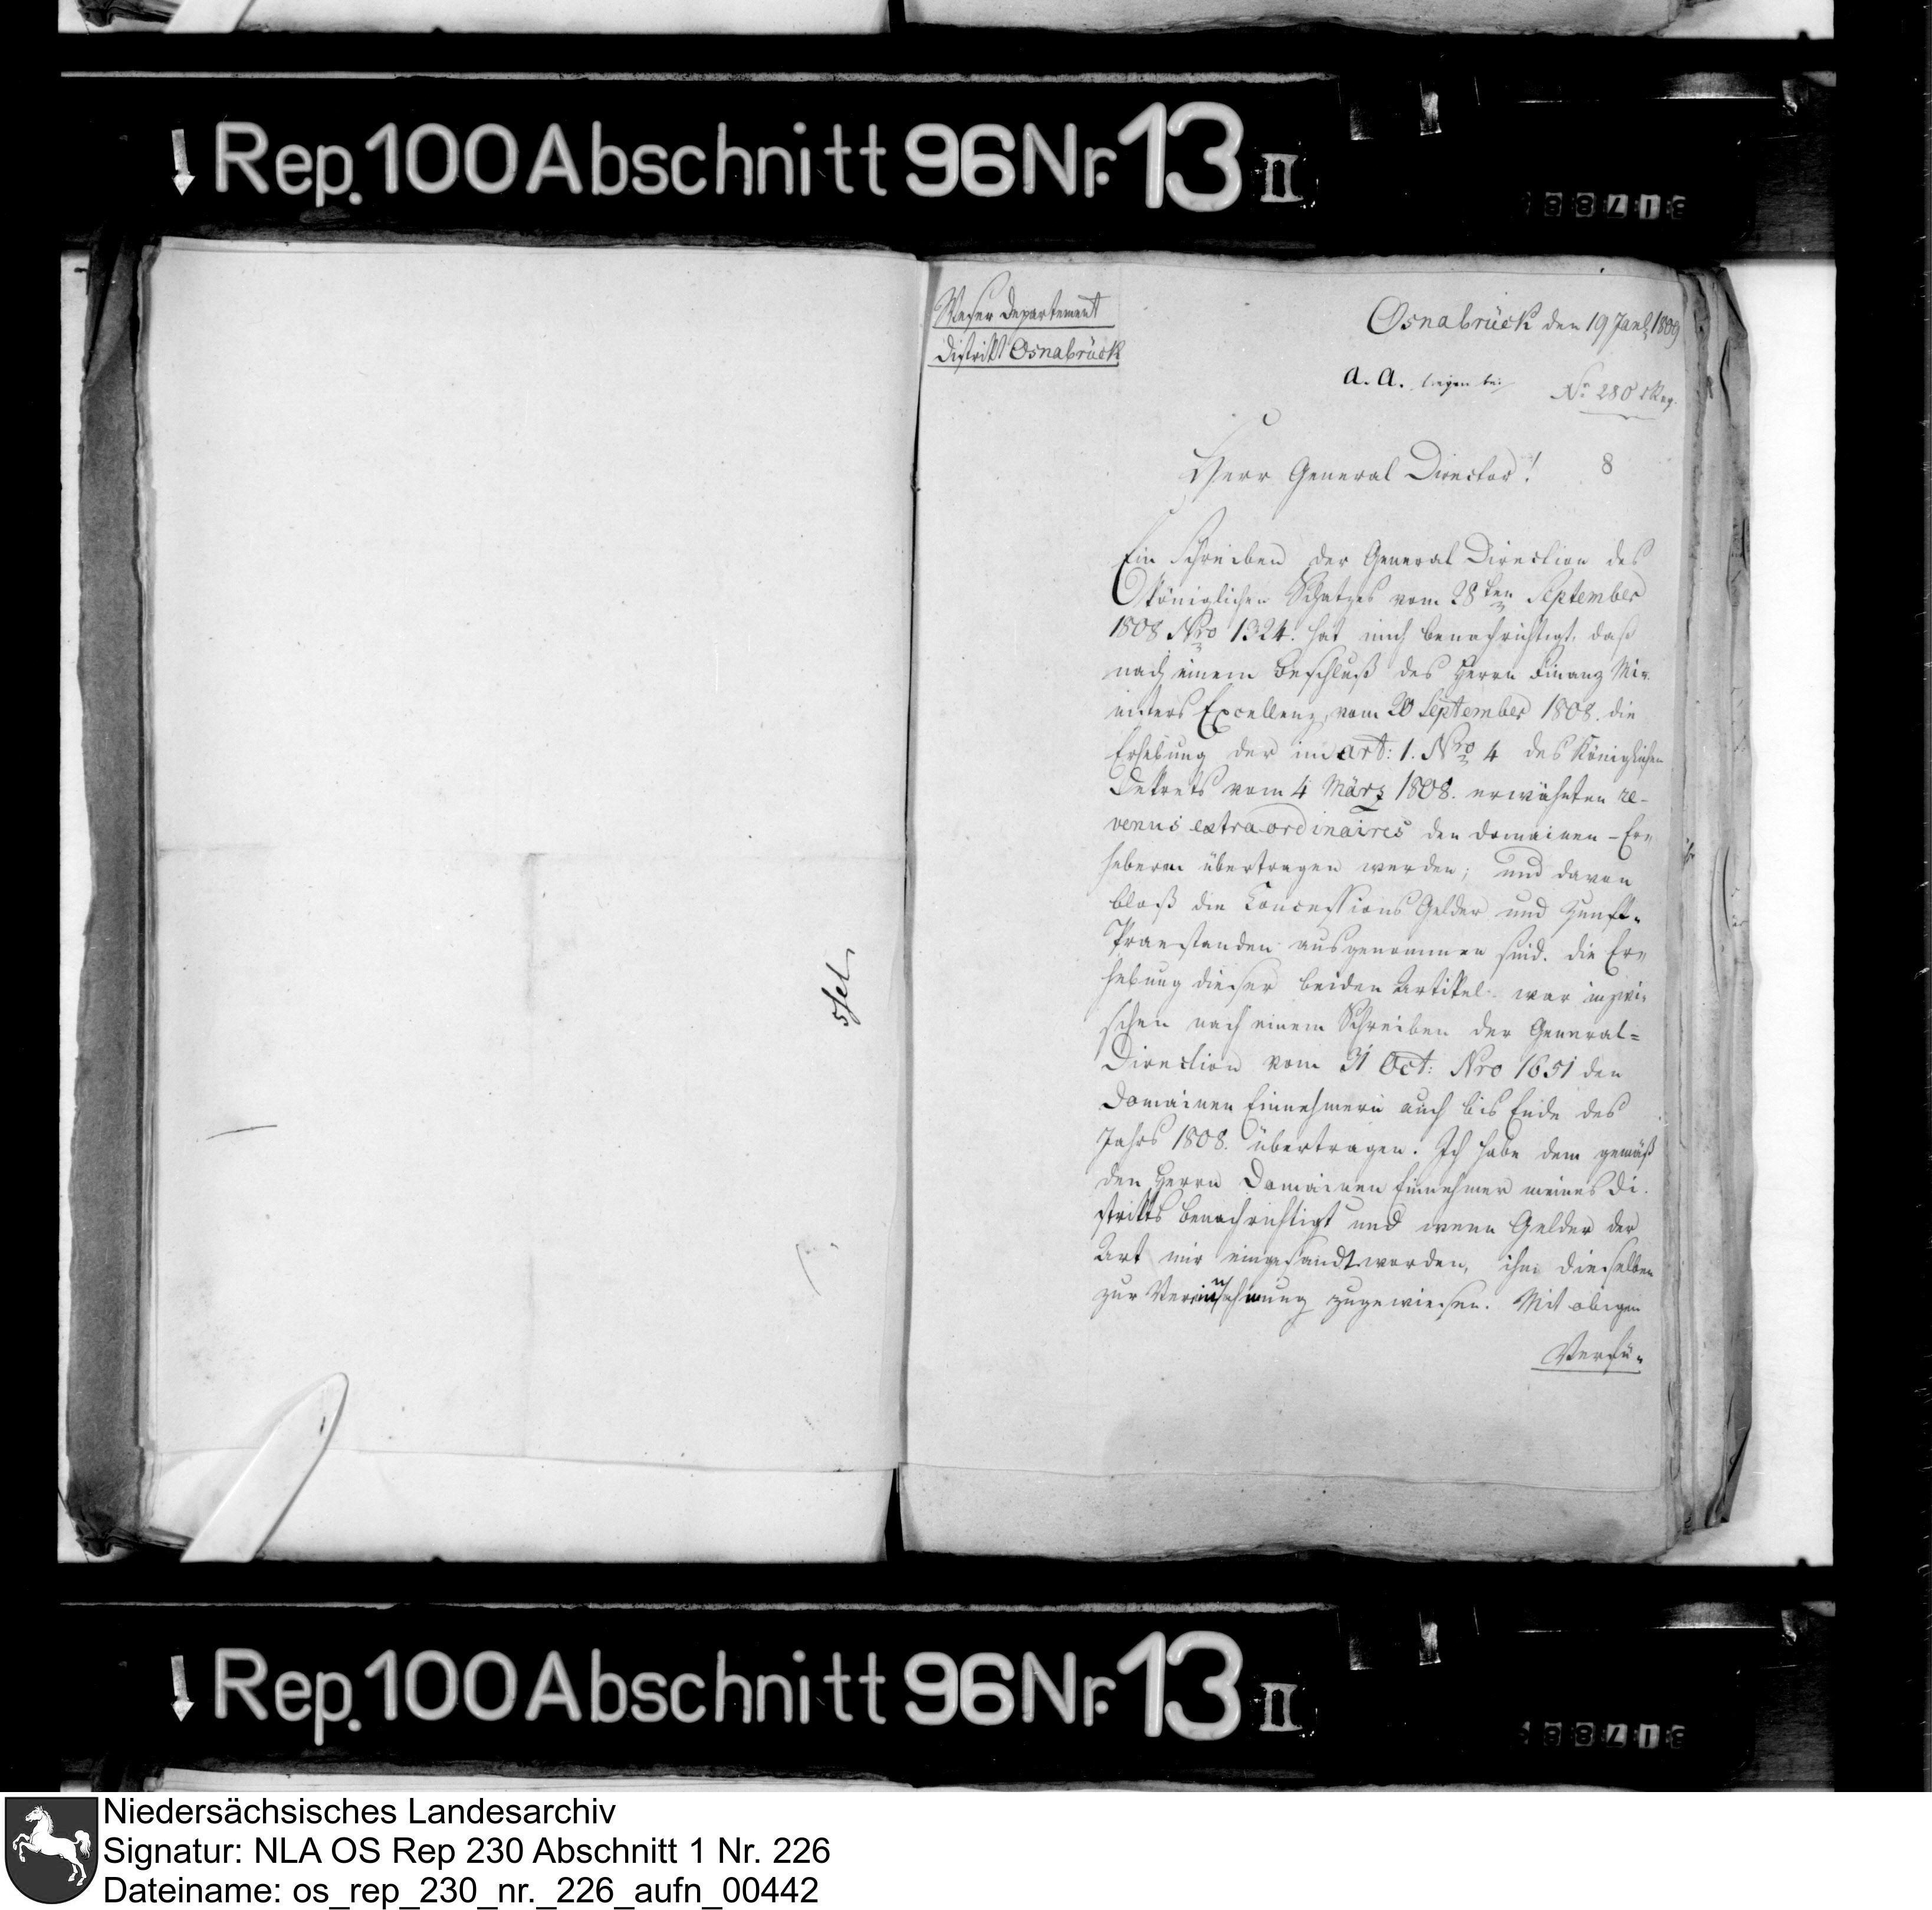 Rep. 100 Abschnitt 96 Nr. 13 II
31788
Weser Departement
Distrikt Osnabrück
Osnabrück den 19 Janr 1809
a. a. liegen bei
No 280 Reg.
8
Herr General Director!
Ein Schreiben der General Direction des
Königlichen Schatzes vom 28ten September
1808 Nro 1324. hat mich benachrichtigt, daß
nach einem Beschluß des Herrn Finanz Mi-
nisters Excellenz, vom 20 September 1808. die
Erhebung der im art: 1. Nro 4 des Königlichen
Dekrets vom 4 März 1808. erwähnten re-
venus extraordinaires den Domainen-Er-
hebern übertragen werden; und davon
bloß die Concessions Gelder und Zunft-
Praestanden ausgenommen sind. die Er-
hebung dieser beiden Artikel war inzwi-
schen nach einem Schreiben der General=
Direction vom 31 Oct: Nro 1651 den
Domainen Einnehmern auch bis Ende des
Jahrs 1808. übertragen. Ich habe dem gemäß
den Herrn Domainen Einnehmer meines Di-
strikts benachrichtigt und wenn Gelder der
Art mir eingesandt worden, ihm dieselben
zur Vereinnahmung zugewiesen. Mit obigen
Verfü-
Rep. 100 Abschnitt 96 Nr. 13 II
31788
Niedersächsisches Landesarchiv
Signatur: NLA OS Rep 230 Abschnitt 1 Nr. 226
Dateiname: os_rep_230_nr._226_aufn_00442